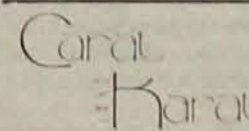 Carat
Karat